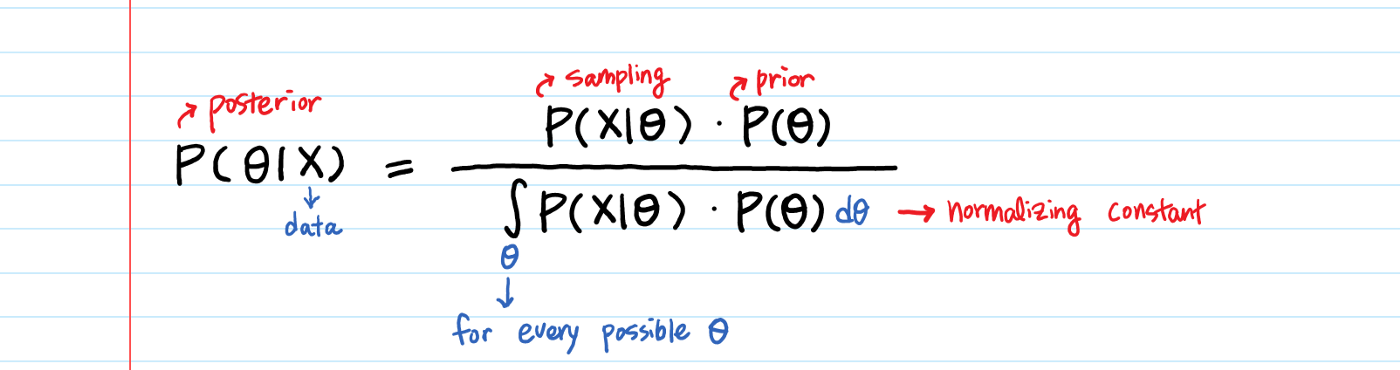 ↗ posterior
↗ sampling
↗ prior
P(θ|X) = P(X|θ) · P(θ)
∫ P(X|θ) · P(θ) dθ → normalizing constant
θ
↓
data
↓
for every possible θ